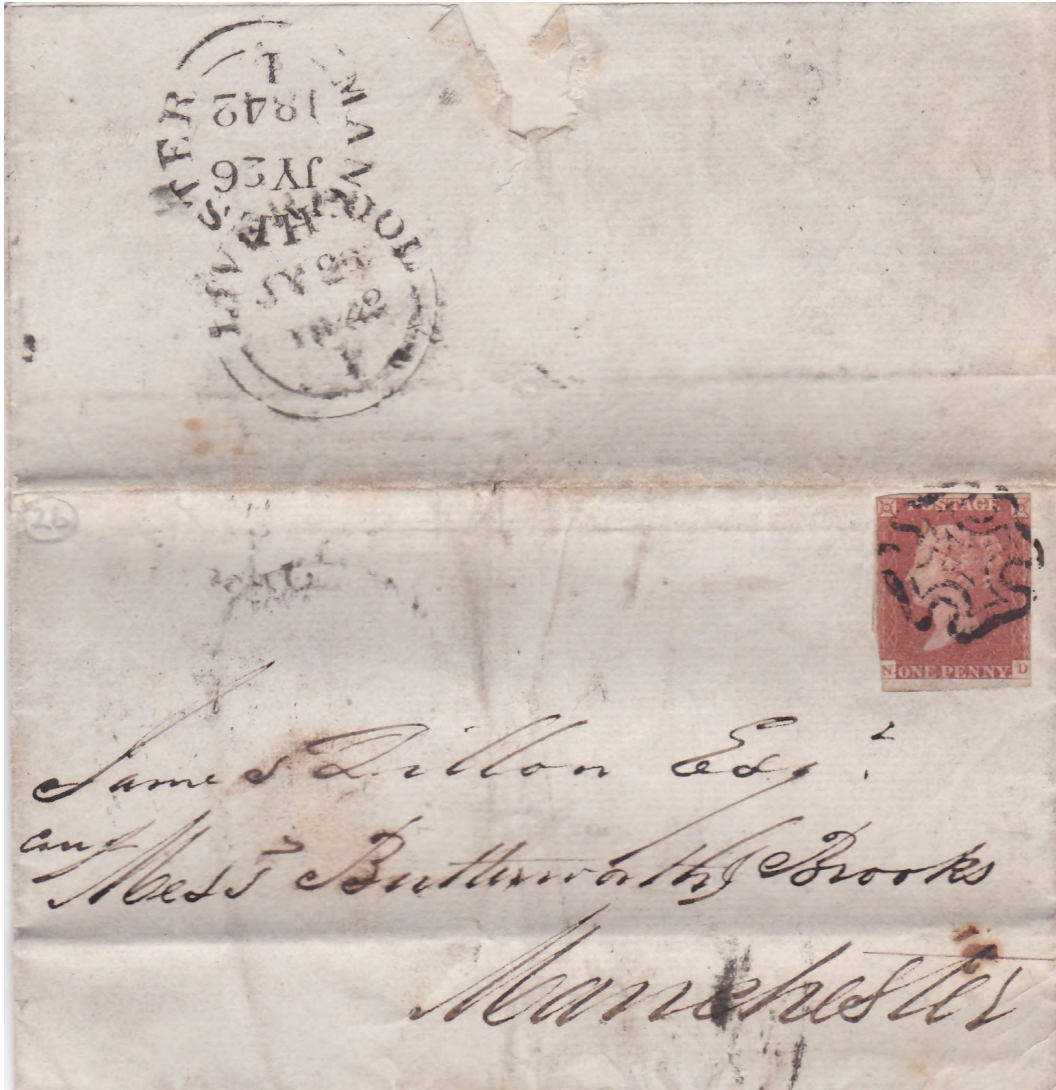 MANCHESTER
JY 26
1842
1
LIVERPOOL
JY
1842
26
POSTAGE
N ONE PENNY. D
James Dillon Esqr
Messrs Butterworth & Brooks
Manchester